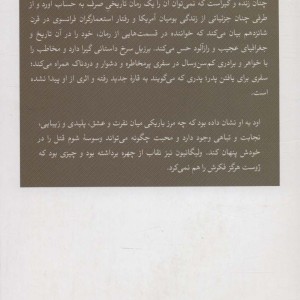 چنان زنده و گیراست که نمی‌توان آن را یک رمان تاریخی صرف به حساب آورد و از
طرفی چنان جزئیاتی از زندگی بومیان آمریکا و رفتار استعمارگران فرانسوی در قرن
شانزدهم بیان می‌کند که خواننده در قسمت‌هایی از رمان، خود را در آن تاریخ و
جغرافیای عجیب و رازآلود حس می‌کند. برزیل سرخ داستانی گیرا دارد و مخاطب را
با خواهر و برادری کم‌سن‌وسال در سفری پرمخاطره و دشوار و دردناک همراه می‌کند؛
سفری برای یافتن پدر؛ پدری که می‌گویند به قاره جدید رفته و اثری از او پیدا نشده
است.
اود به او نشان داده بود که چه مرز باریکی میان نفرت و عشق، پلیدی و زیبایی،
نجابت و تباهی وجود دارد و محبت چگونه می‌تواند وسوسهٔ شوم قتل را در
خودش پنهان کند. ویلگانیون نیز نقاب از چهره برداشته بود و چیزی بود که
ژوست هرگز فکرش را هم نمی‌کرد.